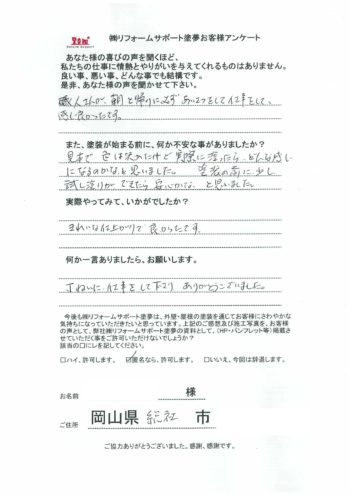 ㈱リフォームサポート塗夢お客様アンケート
あなた様の喜びの声を聞くほど、
私たちの仕事に情熱とやりがいを与えてくれるものはありません。
良い事、悪い事、どんな事でも結構です。
是非、あなた様の声を聞かせて下さい。
職人さんが、朝と帰りに必ずあいさつをして仕事をして、
感じ良かったです。
また、塗装が始まる前に、何か不安な事がありましたか?
見本で色は決めたけど実際に塗ったら、どんな感じ
になるのかなと思いました。塗装の前に少し
試し塗りができたら安心かな、と思いました。
実際やってみて、いかがでしたか?
きれいな仕上がりで良かったです。
何か一言ありましたら、お願いします。
ていねいに仕事をして下さり ありがとうございました。
今後も㈱リフォームサポート塗夢は、外壁・屋根の塗装を通じてお客様にさわやかな
気持ちになっていただきたいと思っています。上記のご感想及び施工写真を、お客様
の声として、弊社㈱リフォームサポート塗夢の資料として、(HP・パンフレット等)掲載さ
せていただく事をご許可いただけないでしょうか?
該当の□にレを記してください。
□ハイ、許可します。 ☑匿名なら、許可します。 □いいえ、今回は辞退します。
お名前 様
ご住所 岡山県 総社 市
ご協力ありがとうございました。感謝、感謝です。